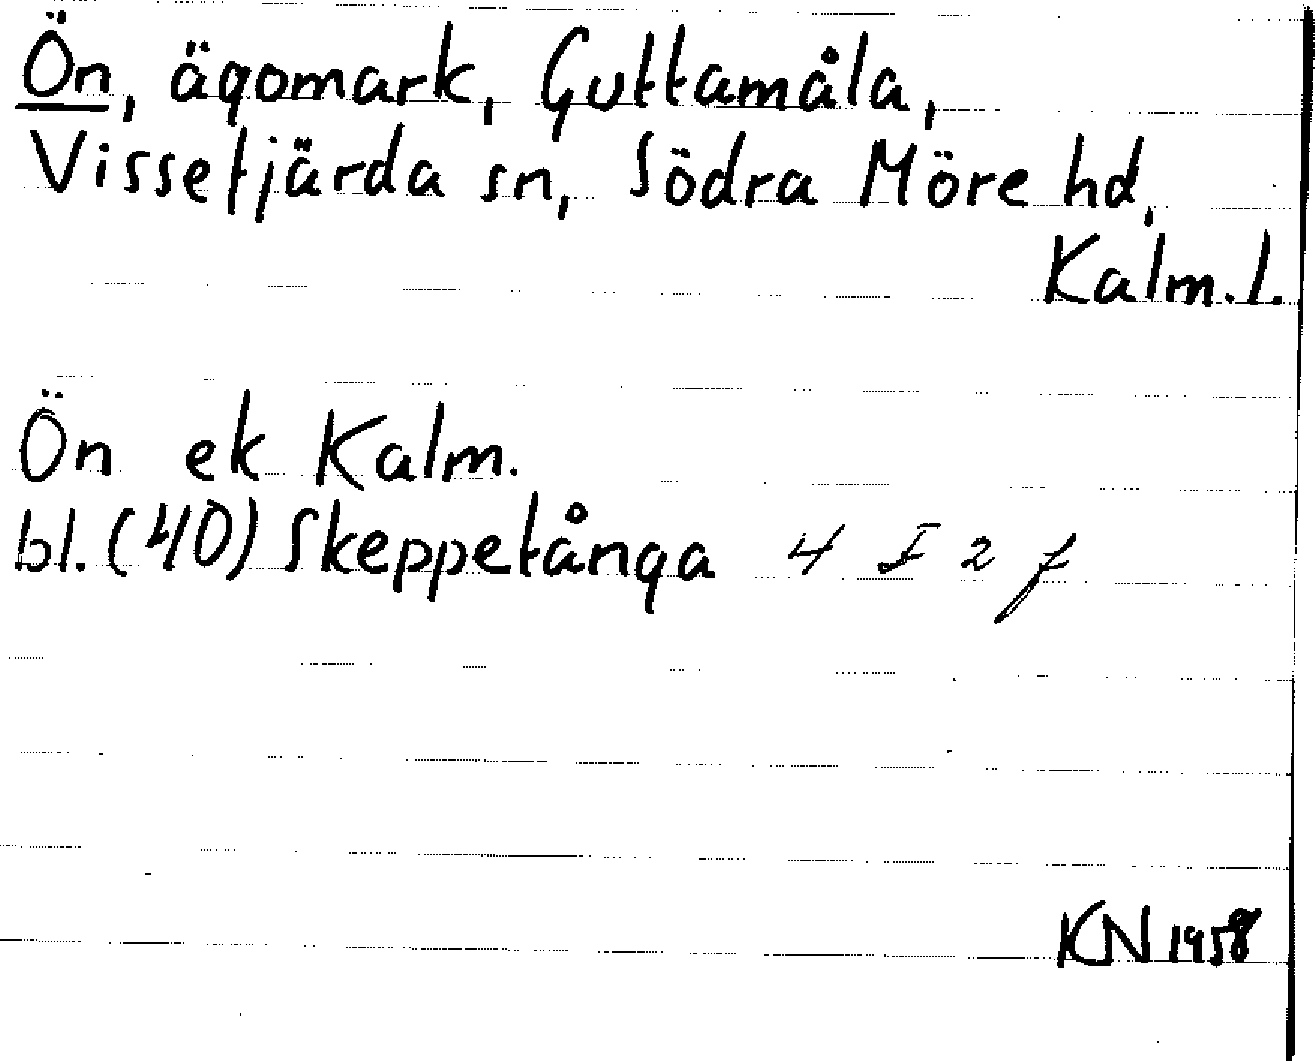 Ön, ägomark, Guttamåla,
Vissefjärda sn, Södra Möre hd,
Kalm. l.
Ön ek Kalm.
bl. (40) Skeppetånga 4 I 2 f
KN 1958